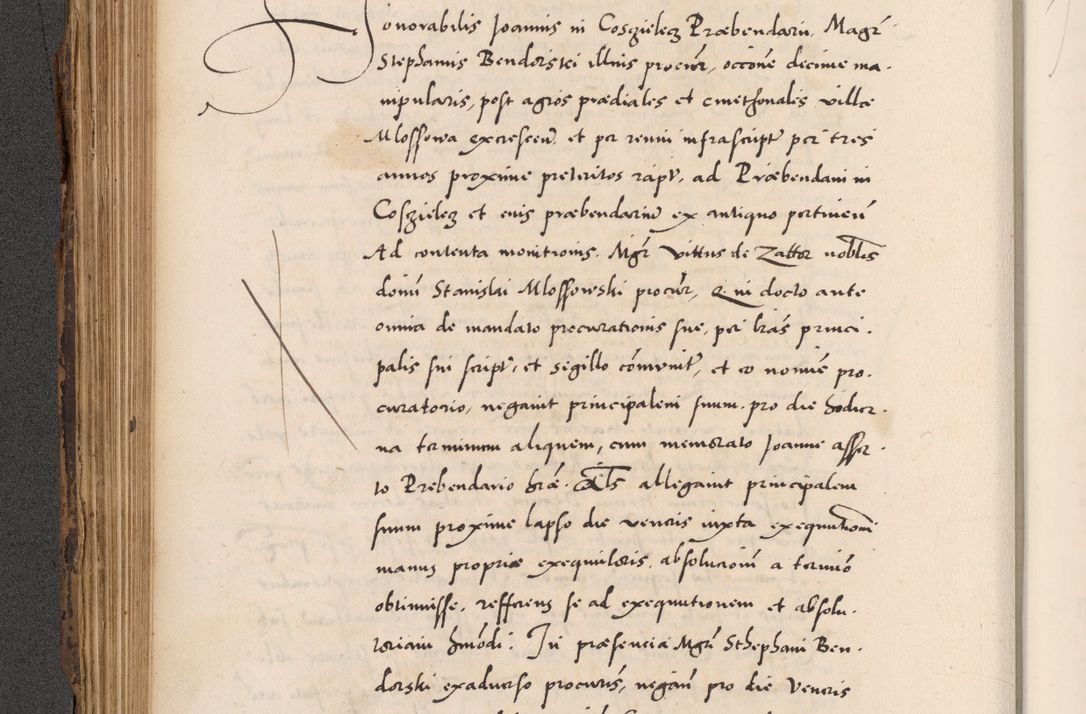 Honorabilis Joannis in Coszielecz Præbendarii, Magr̄
Stephanus Bendorski illius procūr, occōne decime ma-
nipularis, post agros prædiales et cmethonales villæ
Mlossowa excrescen̄. et per reum infrascript̄ per tres
annos proxime preteritos rapt̄. ad Præbendam in
Coszielecz et eius præbendariū ex antiquo pertinen̄
Ad contenta monitionis. Mgr̄ Vittus de Zator nobl̄is
domī Stanislai Mlossowski procūr, in docto ante
omnia de mandato procurationis sue, per lr̄as princi-
palis sui script̄, et sigillo cōmunit̄, et eo nomīe pro-
curatorio, negavit principalem suum pro die hodier-
na terminum aliquem, cum memorato Joanne asser-
to Prebendario hr̄e. allegavit principalem
suum proxime lapso die veneris iuxta exequutionē
manus propriæ exequutoris, absolucionē a termīo
obtinuisse, refferens se ad exequutionem et absolu-
toriam hmōdi. In præsencia Mgrī Sthephani Ben-
dorski exadverso procurīs, negan̄ pro die Veneris